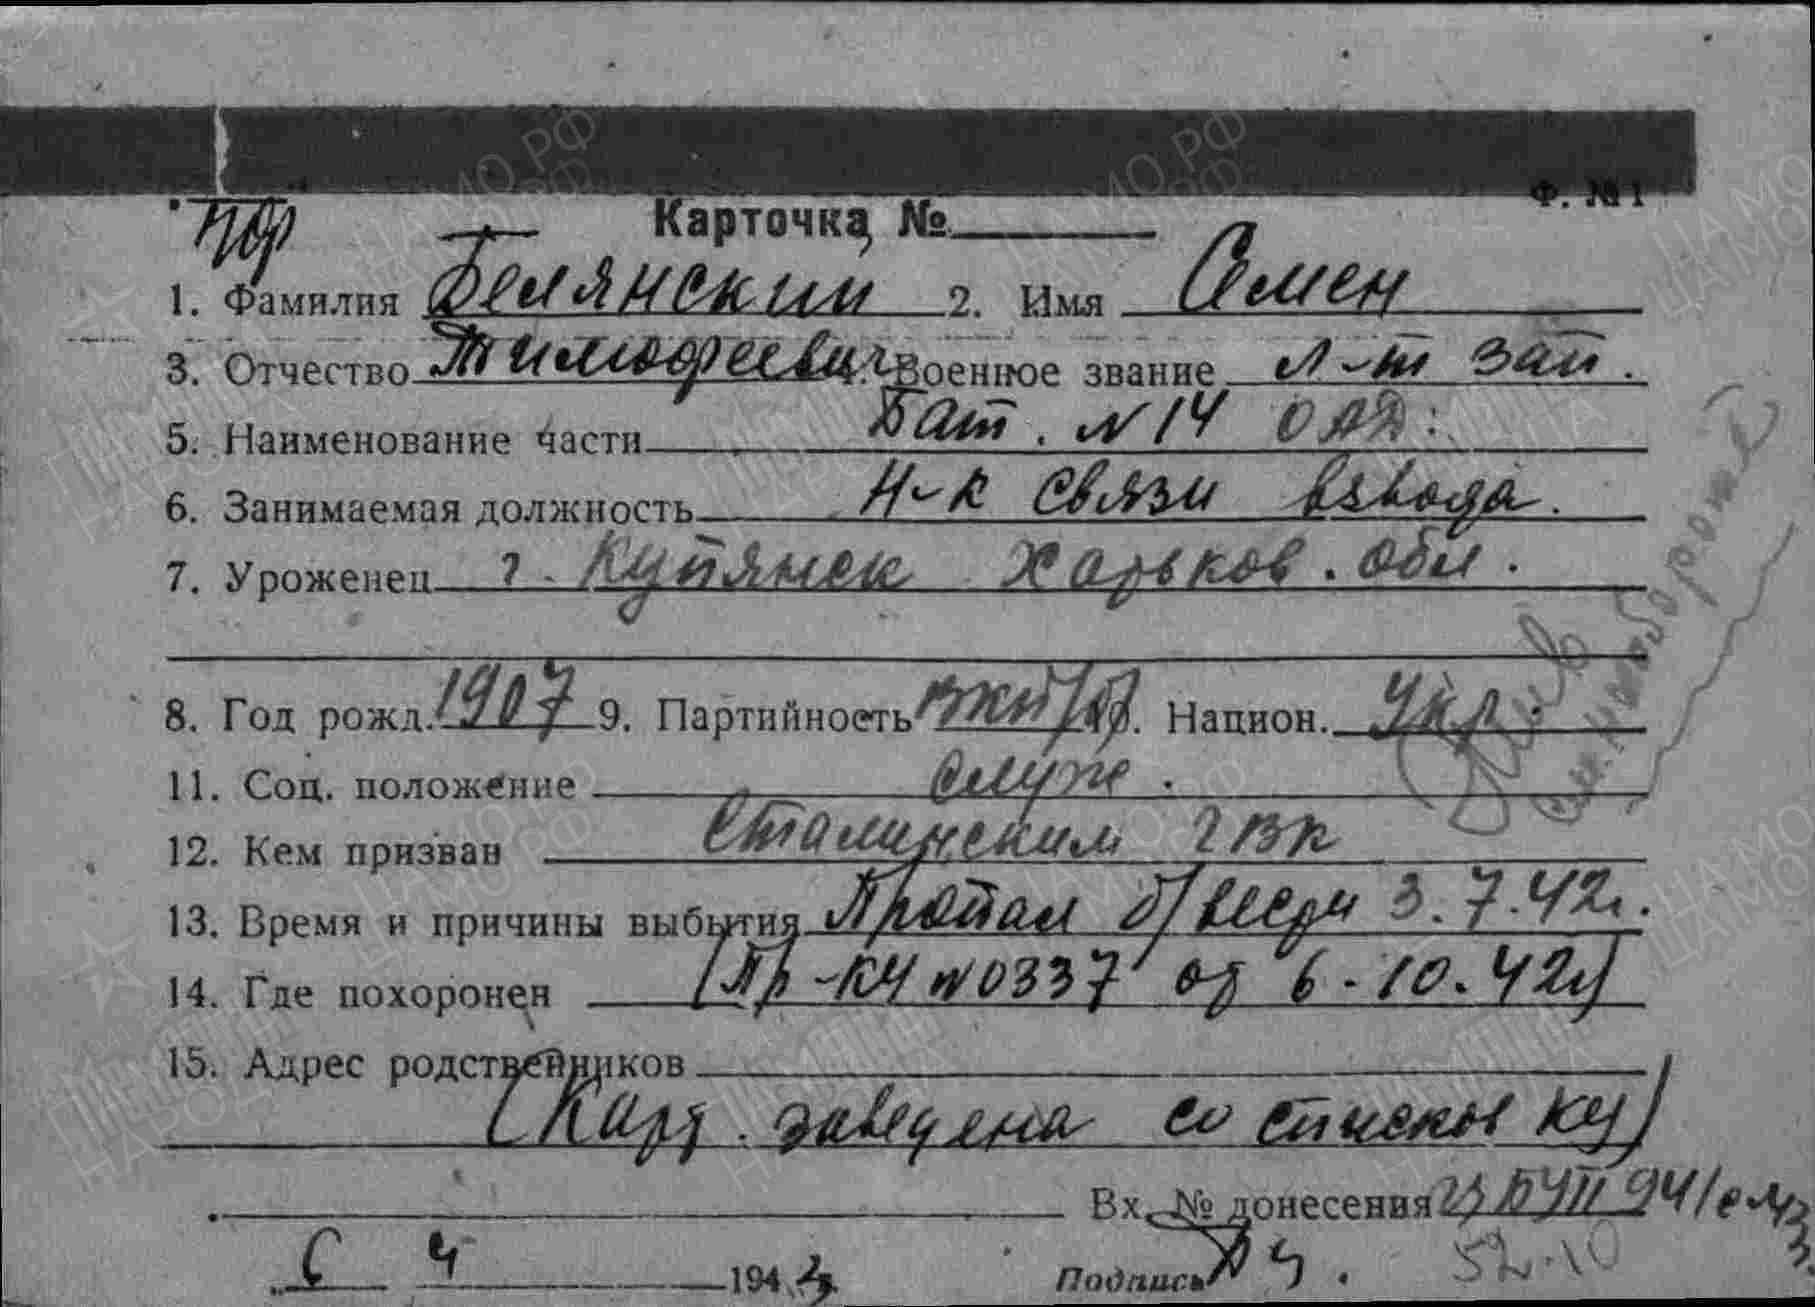 Ф. № 1
Карточка №
1. Фамилия Белянский 2. Имя Семен
3. Отчество Тимофеевич Военное звание л-т зап.
5. Наименование части Бат. N 14 ОАД.
6. Занимаемая должность Н-к связи взвода.
7. Уроженец г. Купянск Харьков. обл.
8. Год рожд. 1907 9. Партийность ВКП/б/. Национ. Укр.
11. Соц. положение служ.
12. Кем призван Сталинским ГВК
13. Время и причины выбытия Пропал б/вести 3.7.42г.
14. Где похоронен (Пр-КЧ N 0337 от 6-10.42г)
15. Адрес родственников
(Карт. заведена со списков КЧ)
Вх. № донесения
4 194 Подпись
см. на обороте